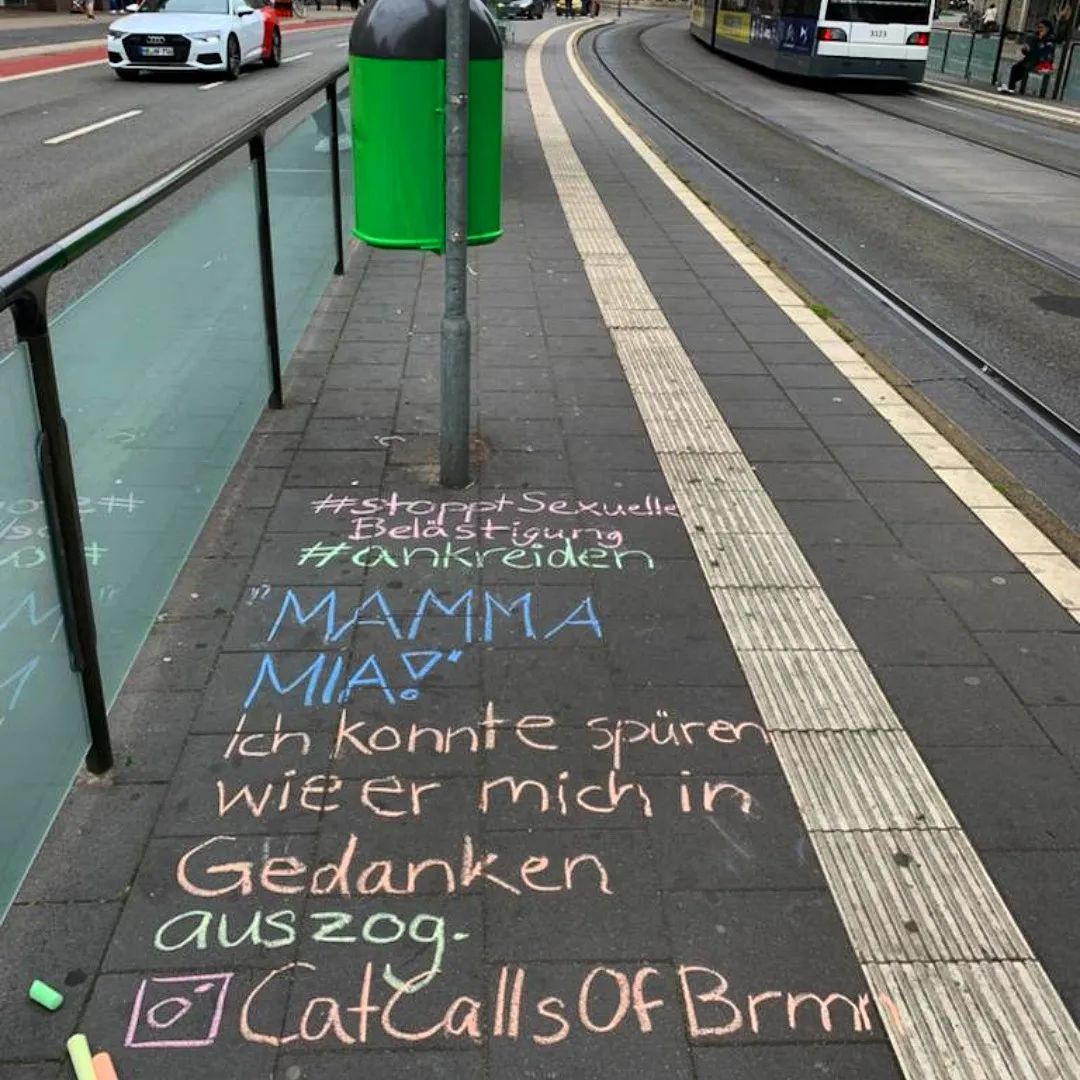 3123
#stopptSexuelle
Belästigung
#ankreiden
"MAMMA
MIA!"
Ich konnte spüren
wie er mich in
Gedanken
auszog.
CatCallsOfBrmn